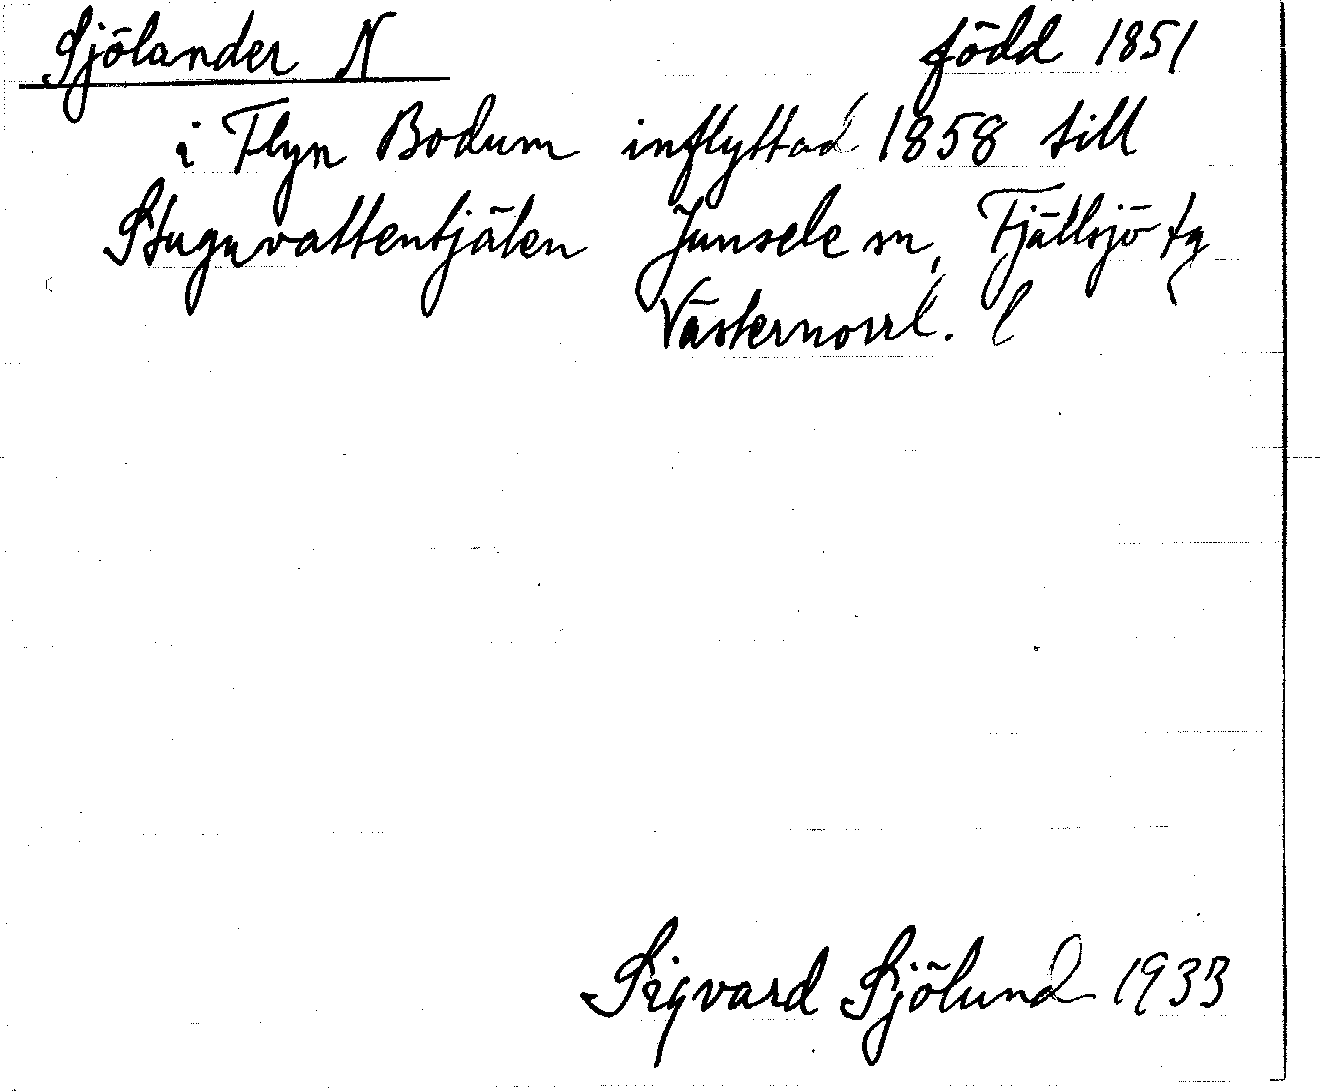 Sjölander N född 1851
i Flyn Bodum inflyttad 1858 till
Stuguvattentjälen Junsele sn, Fjällsjö tg
Västernorrl. l
Sigvard Sjölund 1933